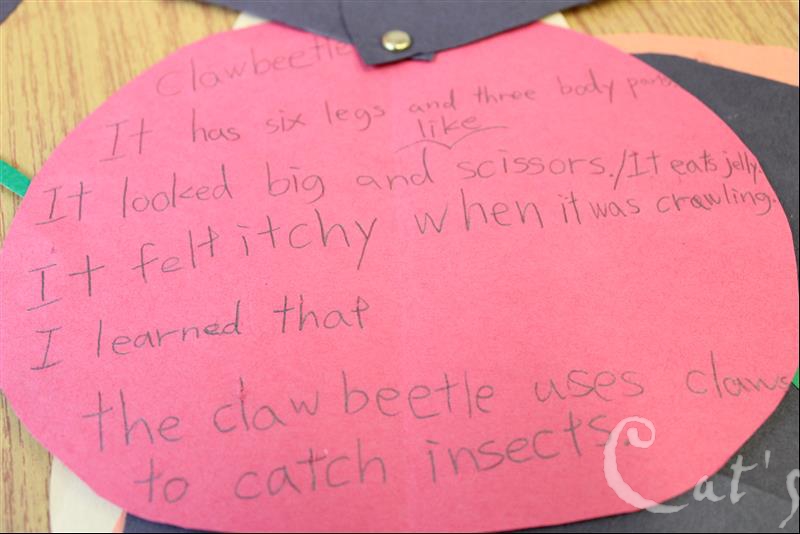 Clawbeetle
It has six legs and three body parts.
like
It looked big and scissors./It eats jelly.
It felt itchy when it was crawling.
I learned that
the claw beetle uses claws
to catch insects.
Cat's